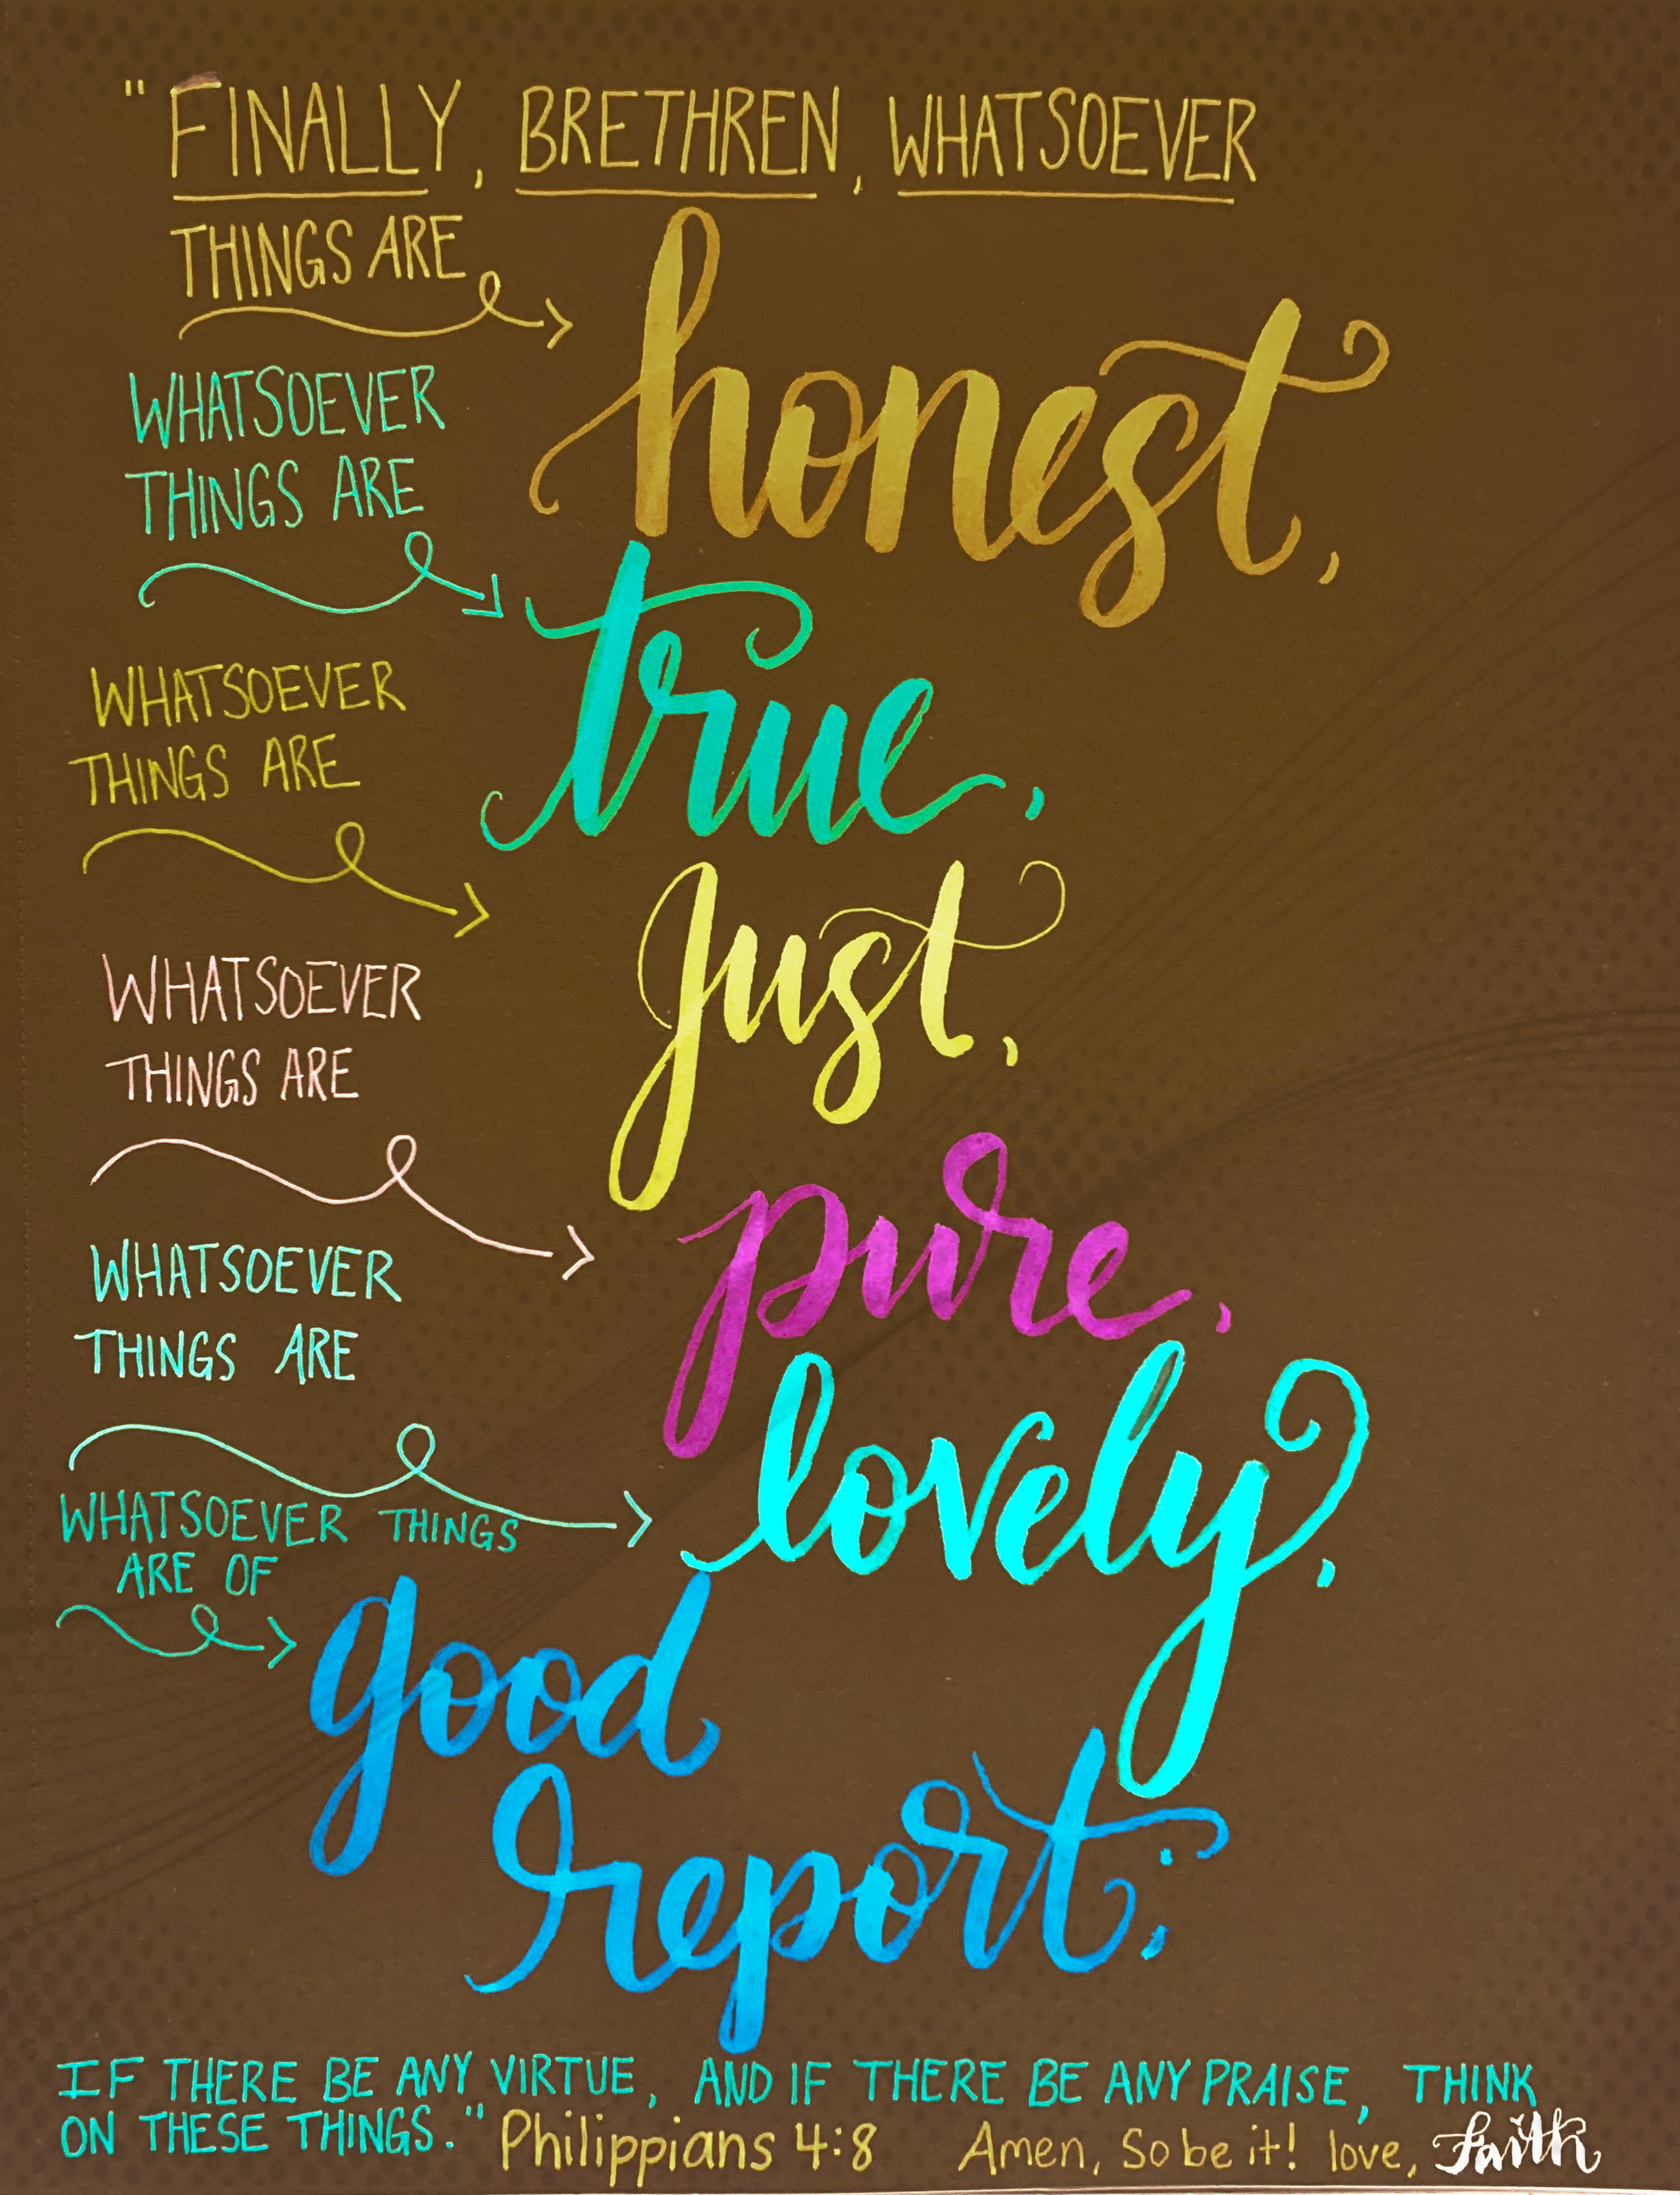 "FINALLY, BRETHREN, WHATSOEVER
THINGS ARE
honest,
WHATSOEVER
THINGS ARE
true,
WHATSOEVER
THINGS ARE
just,
WHATSOEVER
THINGS ARE
pure,
WHATSOEVER
THINGS ARE
lovely,
WHATSOEVER THINGS
ARE OF
good
report;
IF THERE BE ANY VIRTUE, AND IF THERE BE ANY PRAISE, THINK
ON THESE THINGS." Philippians 4:8 Amen, So be it! love, Faith